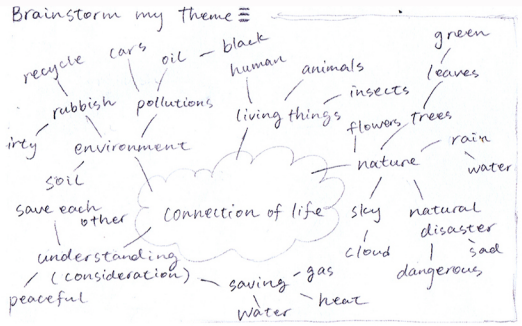 Brainstorm my Theme
recycle
cars
oil
black
rubbish
pollutions
environment
soil
human
animals
living things
insects
green
leaves
trees
flowers
nature
rain
water
sky
cloud
natural
disaster
sad
dangerous
connection of life
save each
other
understanding
(consideration)
peaceful
saving
gas
heat
water